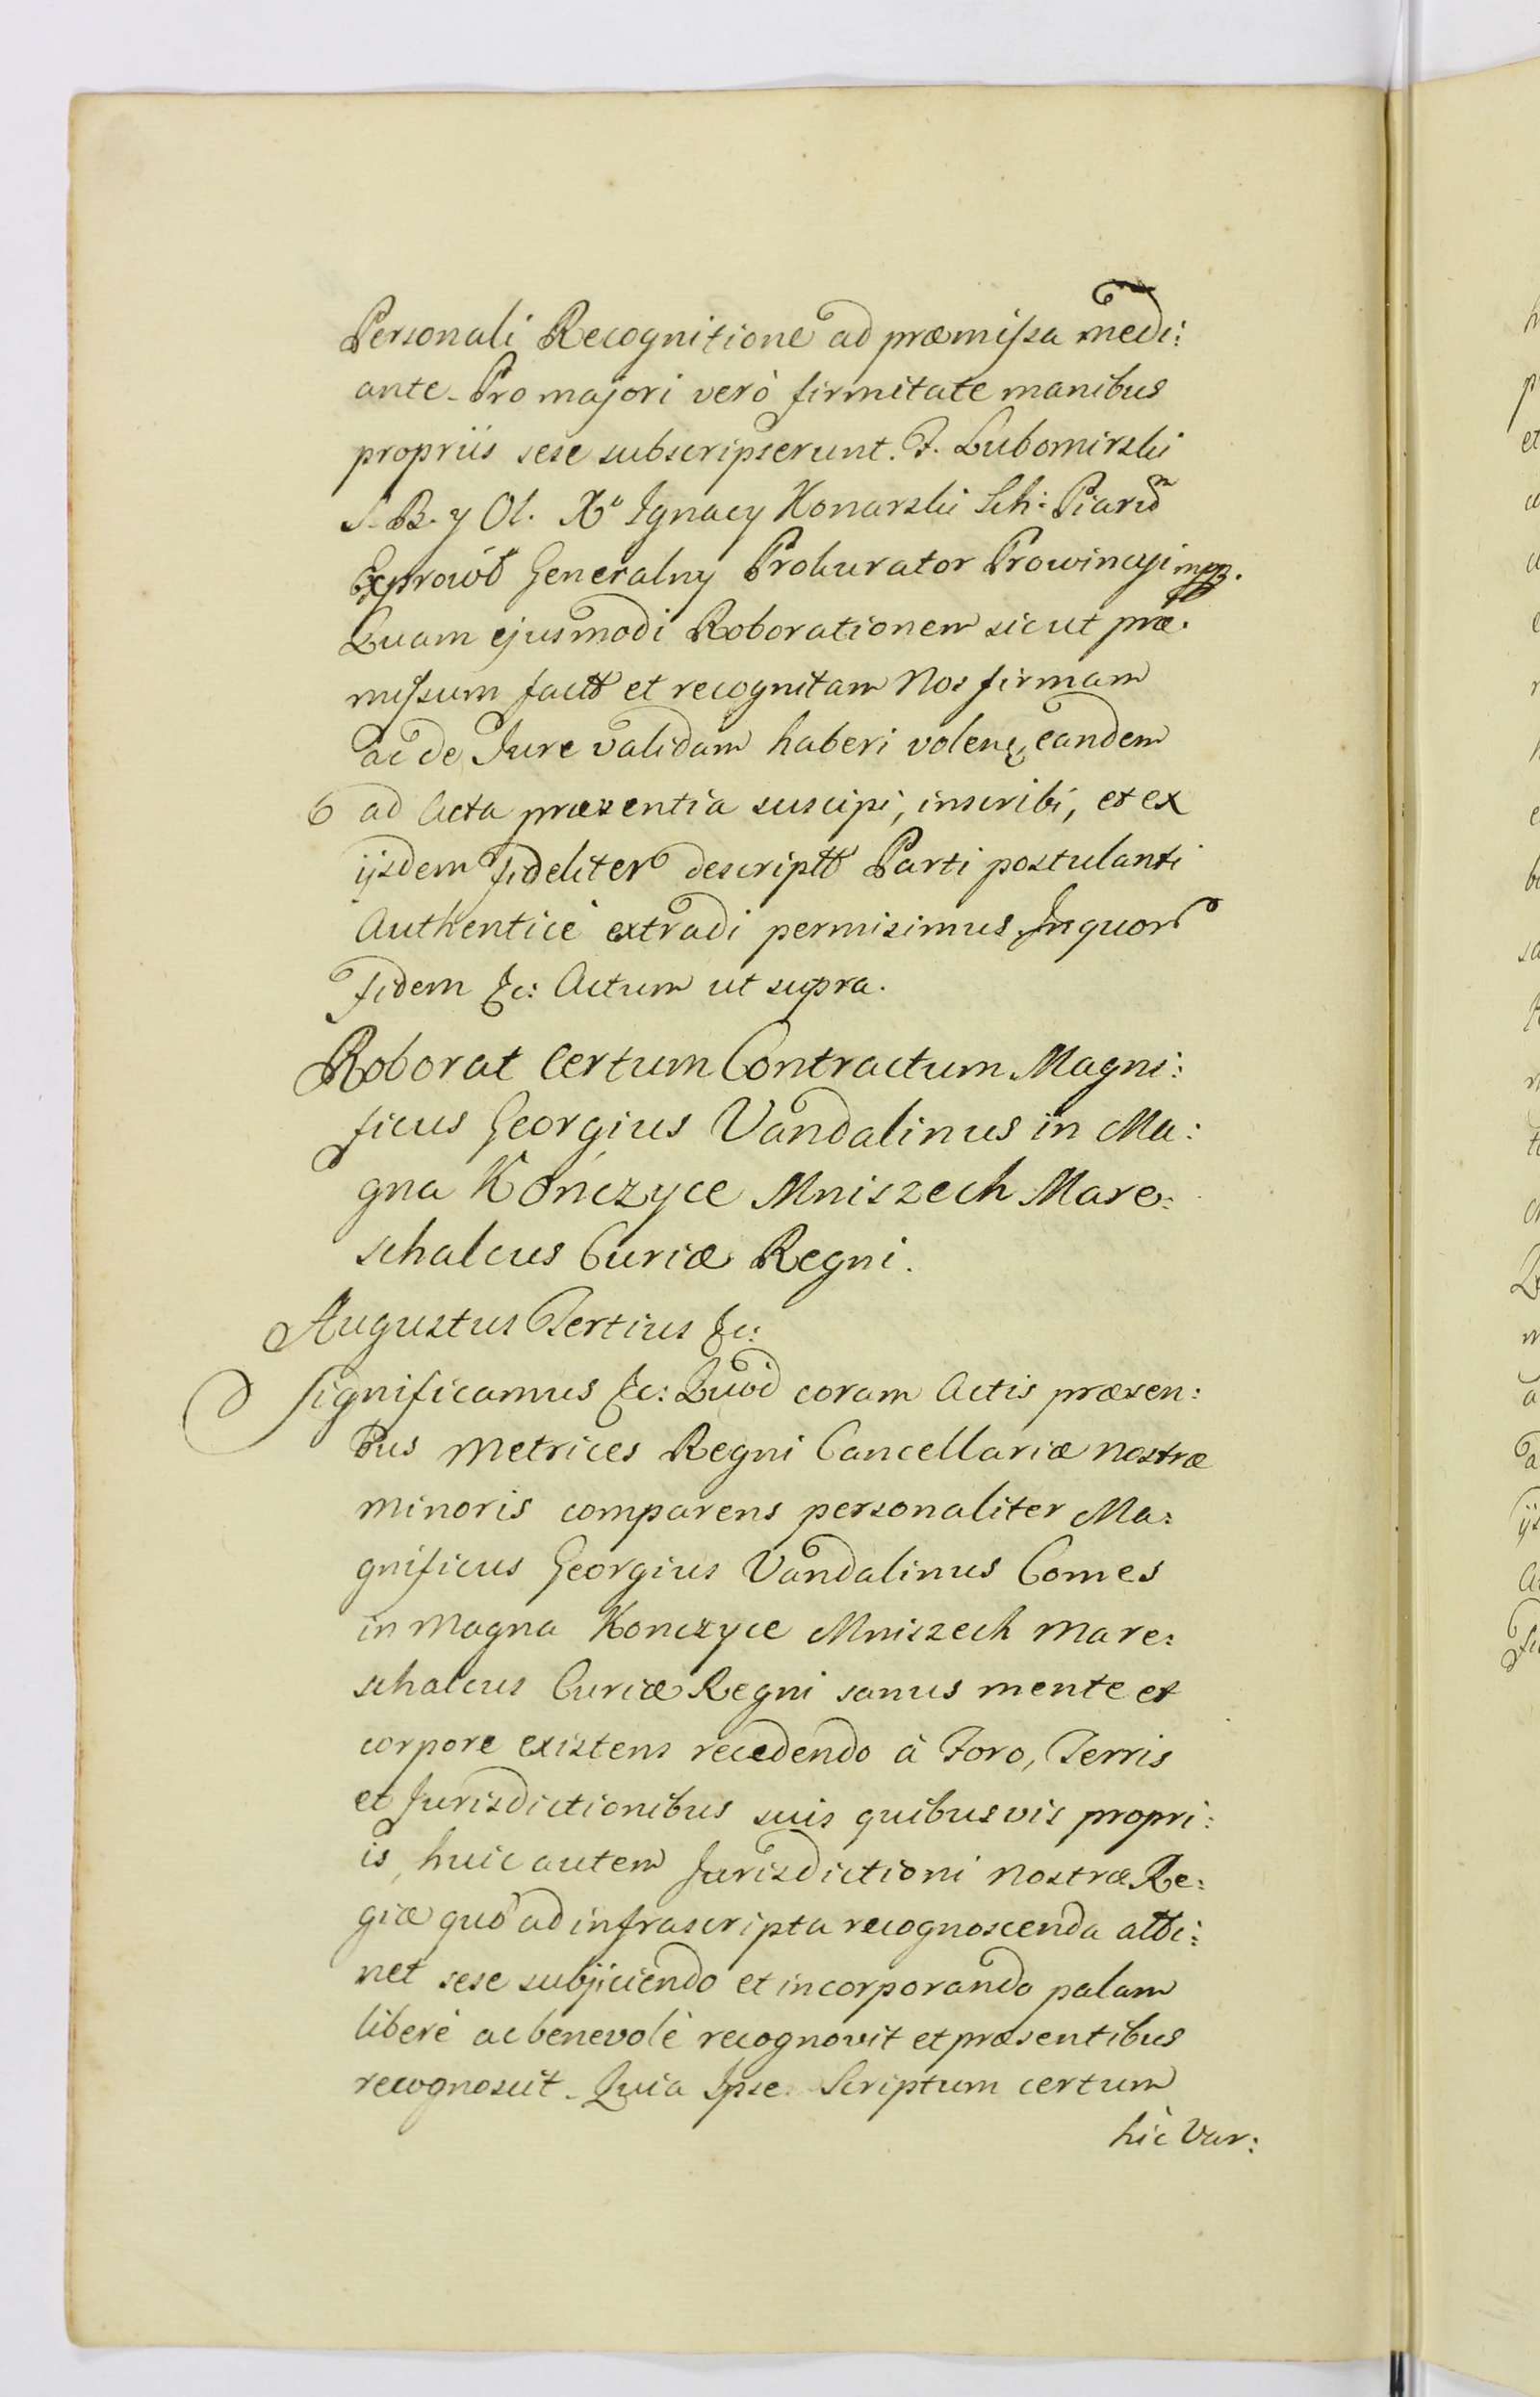 Personali Recognitione ad præmissa medi:
ante. Pro majori verò firmitate manibus
propriis sese subscripserunt. F. Lubomirski
S. B. y Ol. Xº Ignacy Konarski Sch: Piar
Generalny Prokurator Prowincyi mpp.
Quam ejusmodi Roborationem sicut præ.
missum factt et recognitam Nos firmam
ac de Jure validam haberi volen, eandem
ad Acta præsentia suscipi, inscribi, et ex
ijsdem fideliter descriptt Parti postulanti
Authenticè extradi permisimus. In quor
fidem &c: Actum ut supra.
Roborat Certum Contractum Magni:
ficus Georgius Vandalinus in Ma:
gna Kończyce Mniszech Mare:
schalcus Curiæ Regni.
Augustus Tertius &c:
Significamus &c: Quòd coram Actis præsen:
tbus Metrices Regni Cancellariæ nostræ
minoris comparens personaliter Ma:
gnificus Georgius Vandalinus Comes
in Magna Konczyce Mniszech Mare:
schalcus Curiæ Regni sanus mente et
corpore existens recedendo à Foro, Terris
et Jurisdictionibus suis quibusvis propri:
is, huic autem Jurisdictioni nostræ Re:
giæ quo ad infrascripta recognoscenda atti:
net sese subjiciendo et incorporando palam
liberè ac benevolè recognovit et præsentibus
recognoscit. Quia Ipse Scriptum certum
hìc Var: